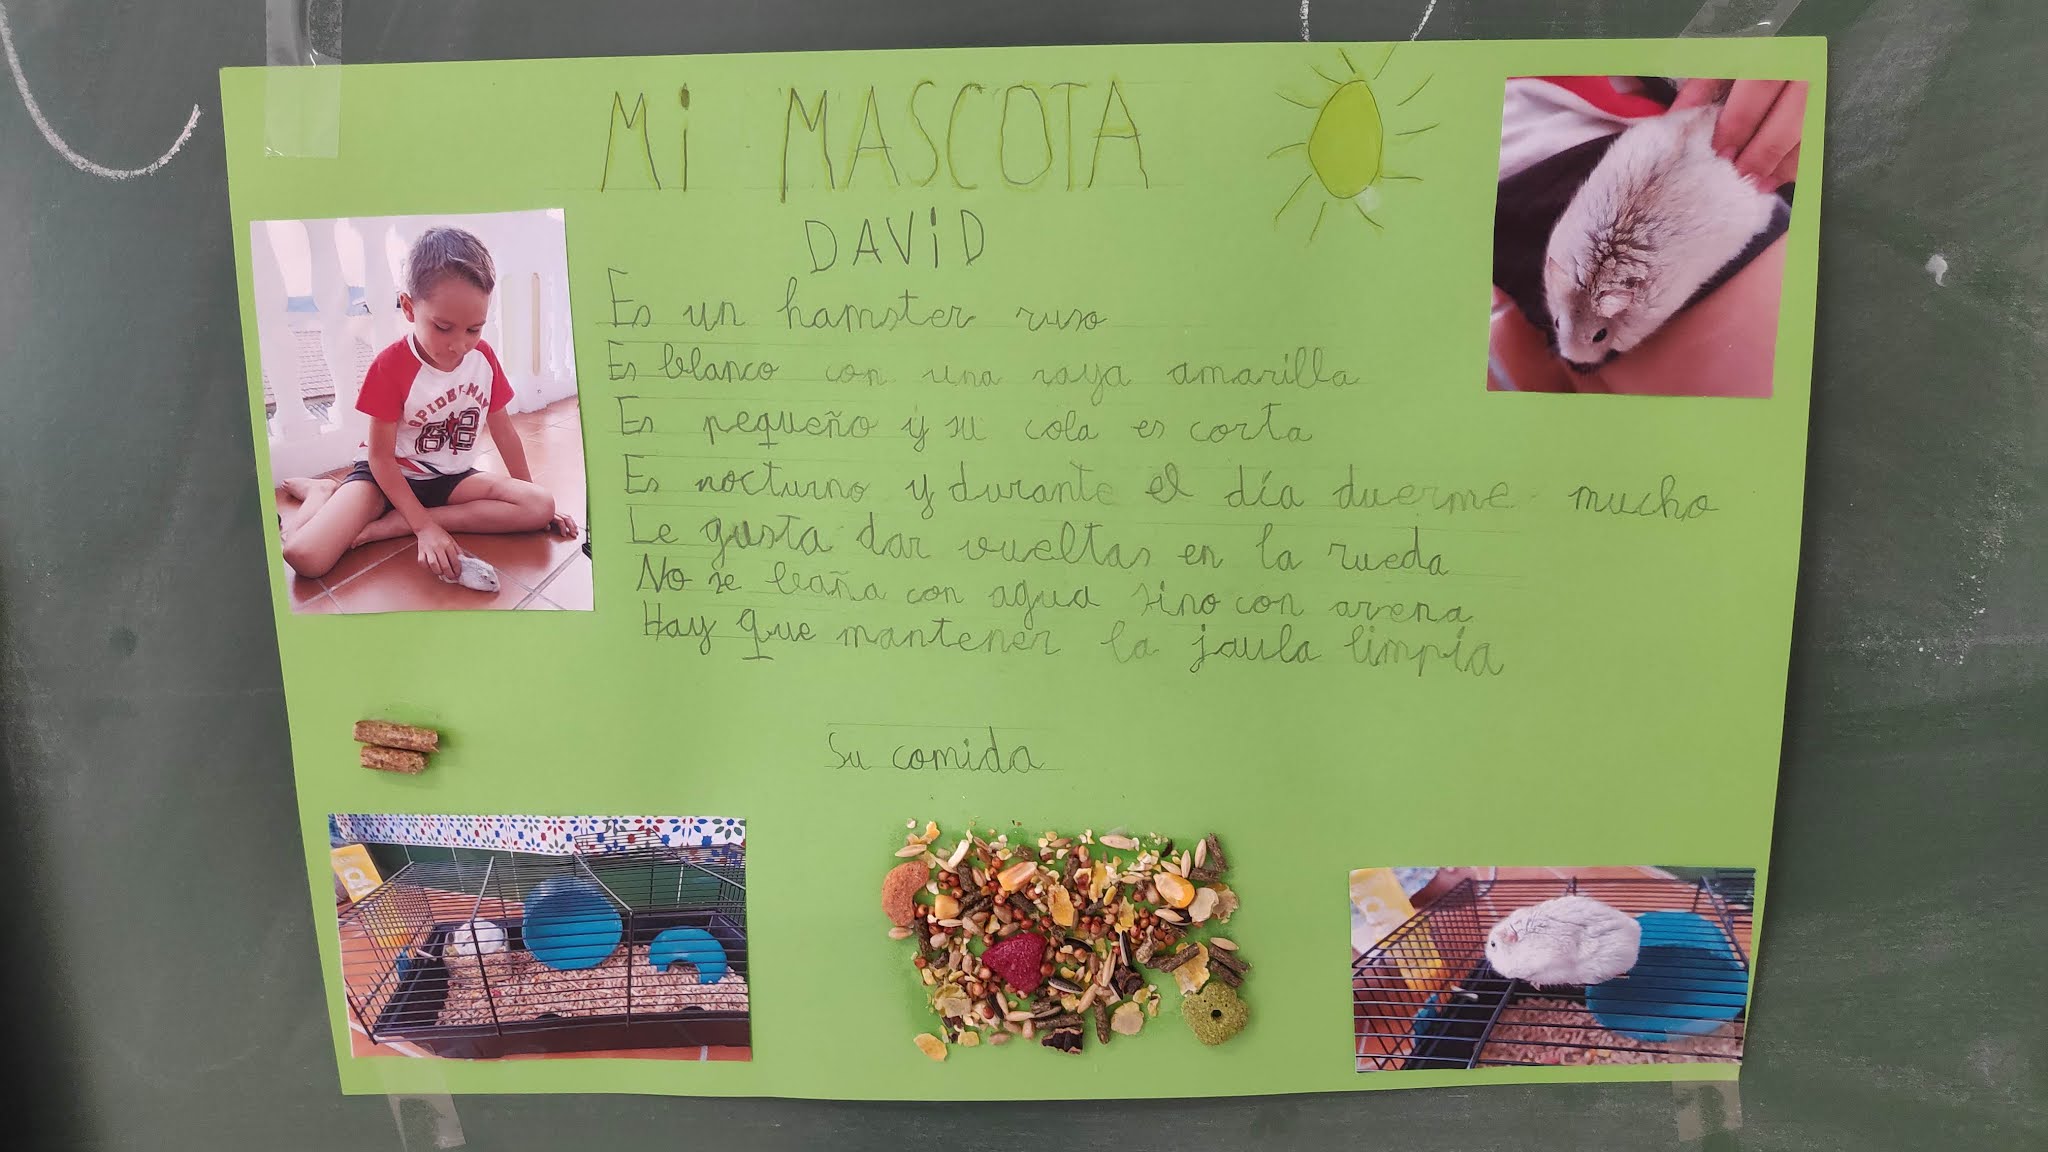 Mi MASCOTA
DAViD
Es un hamster ruso
Es blanco con una raya amarilla
Es pequeño y su cola es corta
Es nocturno y durante el día duerme mucho
Le gusta dar vueltas en la rueda
No se baña con agua sino con arena
Hay que mantener la jaula limpia
Su comida
SPIDER-MAN
62